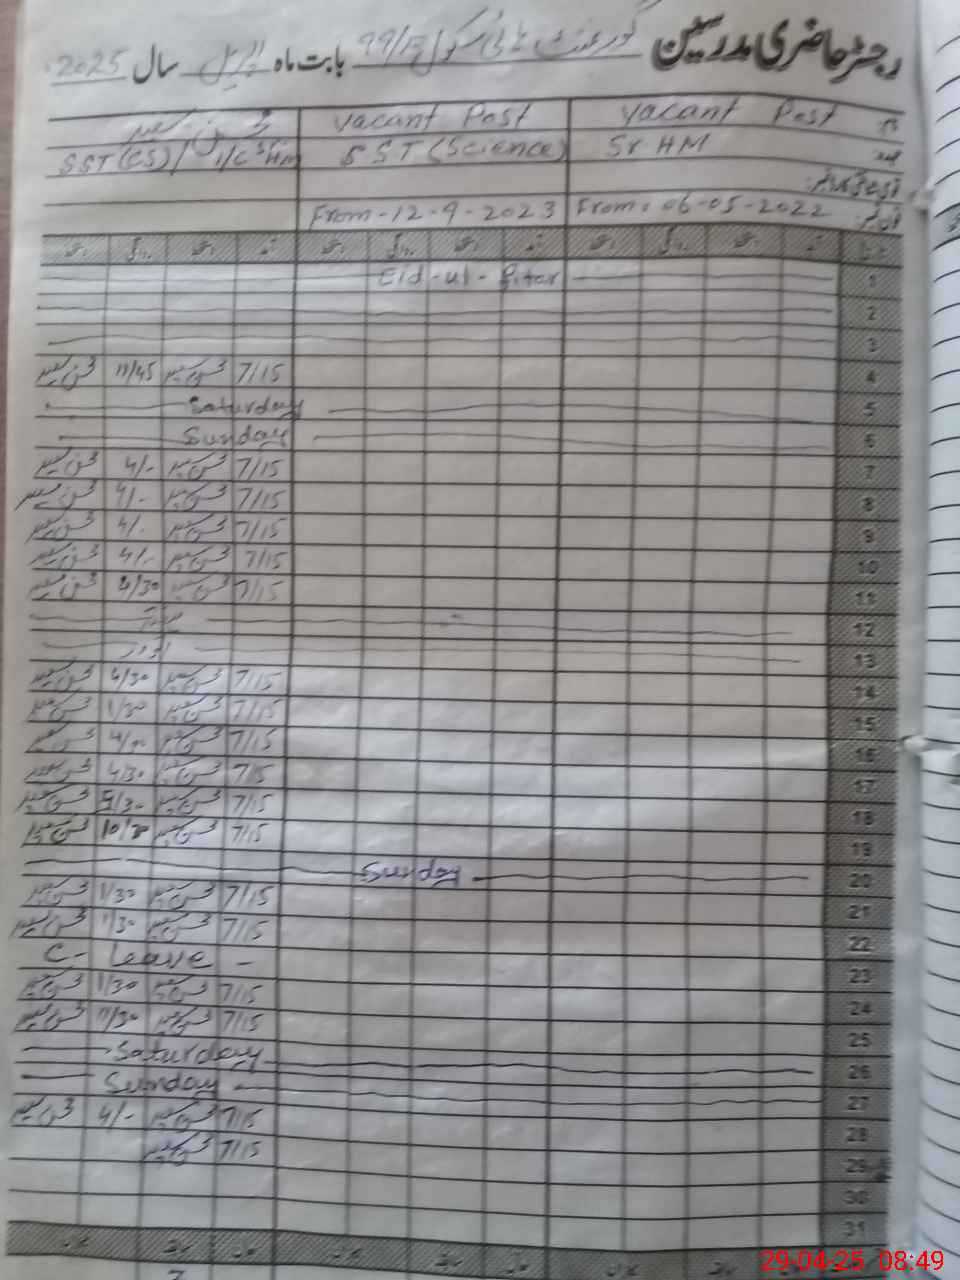 رجسٹر حاضری مدرسین گورنمنٹ ہائی سکول 99/ بابت ماہ اپریل سال 2025
Vacant Post Vacant Post محسن سعید
عہدہ Sr HM SST (Science) SST (CS) / I/C HM
From: 06-05-2022 From - 12-9-2023
1 Eid-ul-Fitar
2
3
4 7/15 محسن سعید 11/45 محسن سعید
5 Saturday
6 Sunday
7 7/15 محسن سعید 4/- محسن سعید
8 7/15 محسن سعید 4/- محسن سعید
9 7/15 محسن سعید 4/- محسن سعید
10 7/15 محسن سعید 4/- محسن سعید
11 7/15 محسن سعید محسن سعید
12
13 اتوار
14 7/15 محسن سعید 4/30 محسن سعید
15 7/15 محسن سعید 1/30 محسن سعید
16 7/15 محسن سعید 4/00 محسن سعید
17 7/15 محسن سعید 4/30 محسن سعید
18 7/15 محسن سعید 5/30 محسن سعید
19 7/15 محسن سعید محسن سعید
20 Sunday
21 7/15 محسن سعید 1/30 محسن سعید
22 7/15 محسن سعید 1/30 محسن سعید
23 C- Leave -
24 7/15 محسن سعید 1/30 محسن سعید
25 7/15 محسن سعید محسن سعید
26 Saturday
27 Sunday
28 7/15 محسن سعید 4/- محسن سعید
29 7/15 محسن سعید
30
31
29-04-25 08:49